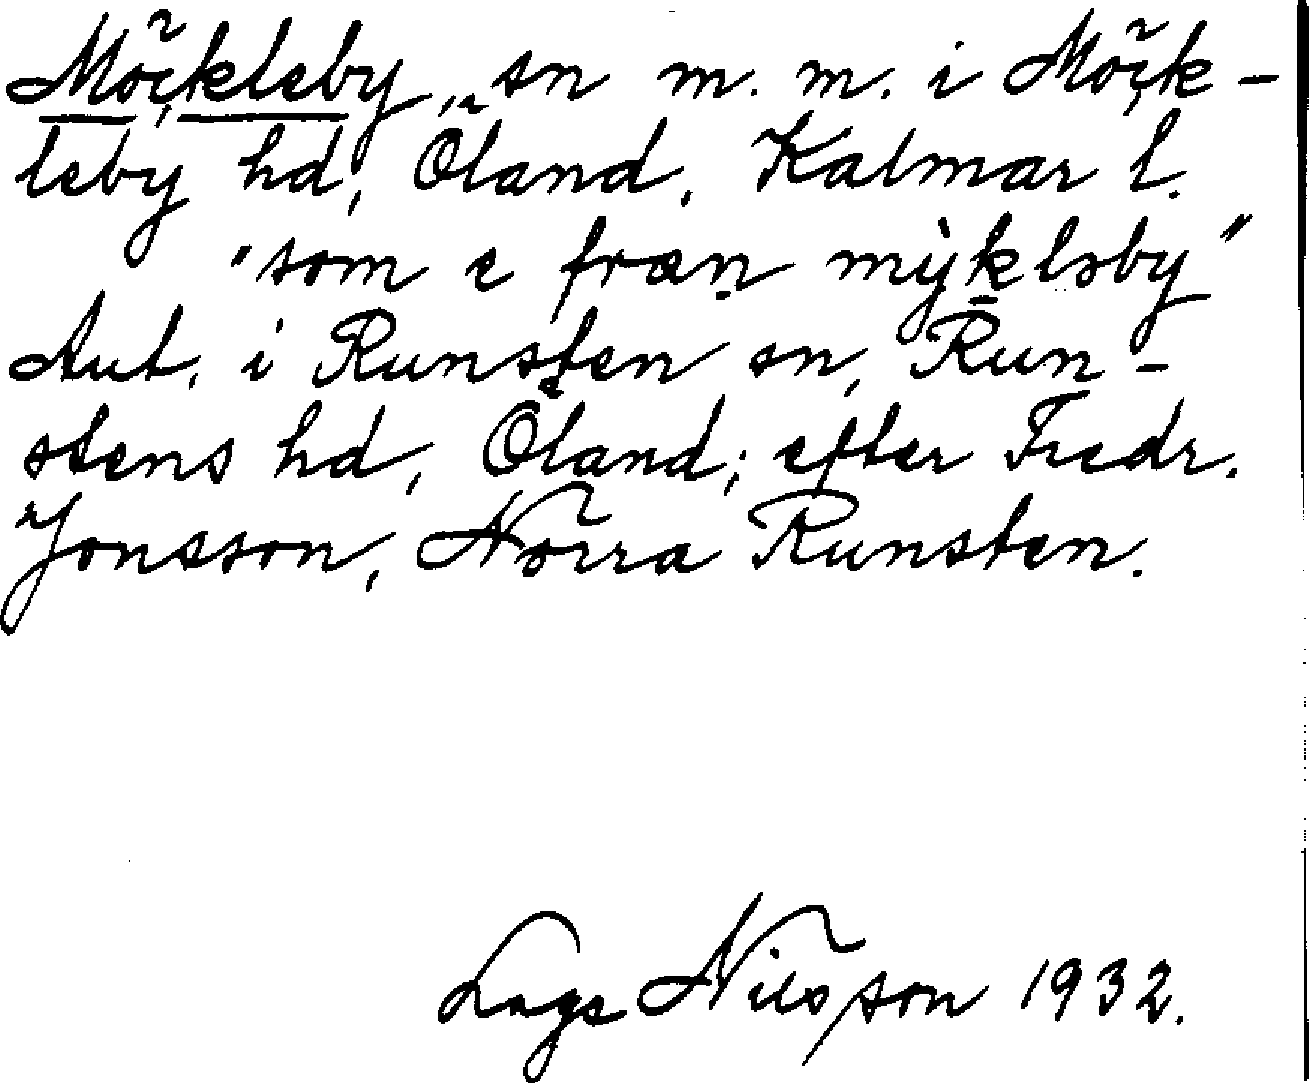 Möckleby, sn m. m. i Möck-
leby hd, Öland, Kalmar l.
"som e fræn mỳkləby"
Aut. i Runsten sn, Run-
stens hd, Öland; efter Fredr.
Jonsson, Norra Runsten.
Lage Nilsson 1932.